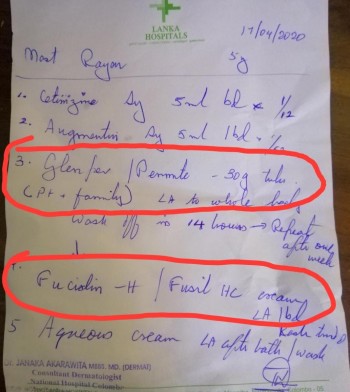 LANKA
HOSPITALS
17/04/2020
Mast Rayan 5y
1. Cetirizine Sy 5ml bd x 1/12
2. Augmentin Sy 5ml bd
3. / Permite - 30g tube
(Pt + family) LA to whole body
Wash off in 14 hours → Repeat
after one
week
4. Fucidin - H / Fusil HC cream
LA bd
5 Aqueous cream LA after bath / wash
JANAKA AKARAWITA MBBS. MD. (DERMAT)
Consultant Dermatologist
National Hospital Colombo